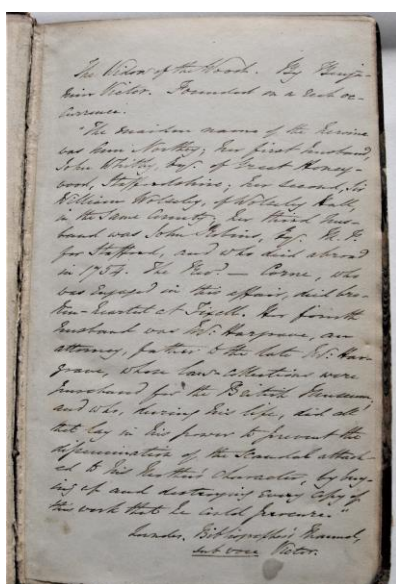 The Widow of the Wood. By Benja-
min Victor. Founded on a real oc-
currence.
"The maiden name of the heroine
was Ann Northey; her first husband,
John Whitby, Esq. of Great Hay-
wood, Staffordshire; her second, Sir
William Wolseley, of Wolseley Hall,
in the same county; her third hus-
band was John Robins, Esq. M.P.
for Stafford, and who died abroad
in 1754. The Revd. — Corne, who
was engaged in this affair, died bro-
ken-hearted at Tixall. Her fourth
husband was Mr. Hargrave, an
attorney, father to the late Mr. Har-
grave, whose law-collections were
purchased for the British Museum,
and who, during his life, did all
that lay in his power to prevent the
dissemination of the scandal attach-
ed to his mother's character, by buy-
ing up and destroying every copy of
this work that he could procure."
Lowndes. Bibliographer's Manual,
sub voce Victor.